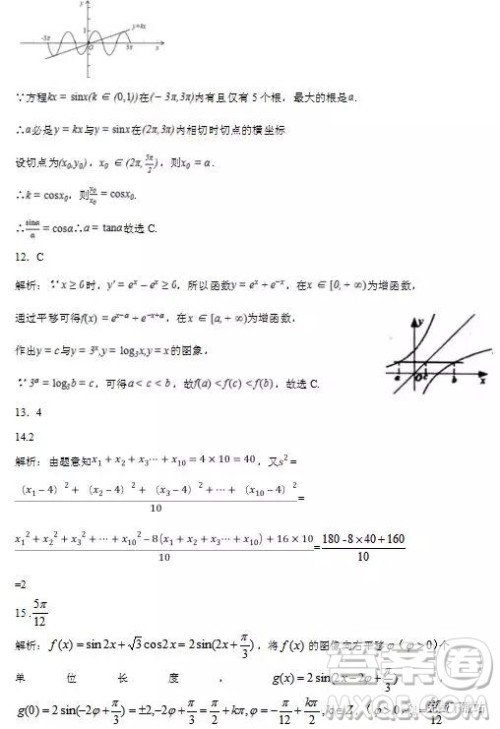 y
y=kx
-3π
O
3π
x
∵方程kx = sinx(k ∈ (0,1))在(− 3π,3π)内有且仅有 5 个根，最大的根是α.
∴α必是y = kx与y = sinx在(2π,3π)内相切时切点的横坐标
设切点为(x₀,y₀)，x₀ ∈ (2π, 5π/2)，则x₀ = α.
∴k = cosx₀，则y₀/x₀ = cosx₀.
∴sinα/α = cosα∴α = tanα故选 C.
12．C
解析：∵x ≥ 0时，y' = eˣ − eˣ ≥ 0，所以函数y = eˣ + e⁻ˣ，在x ∈ [0, + ∞)为增函数，
通过平移可得f(x) = eˣ⁻ᵃ + e⁻ˣ⁺ᵃ，在x ∈ [a, + ∞)为增函数，
作出y = c与y = 3ˣ,y = log₃x,y = x的图象，
∵ 3ᵃ = log₃b = c，可得a < c < b，故f(a) < f(c) < f(b)，故选 C.
y
a
O
c
b
x
13．4
14.2
解析：由题意知x₁ + x₂ + x₃… + x₁₀ = 4 × 10 = 40，又s² =
(x₁ − 4)² + (x₂ − 4)² + (x₃ − 4)² + ⋯ + (x₁₀ − 4)²/10=
x₁² + x₂² + x₃² + ⋯ + x₁₀² − 8(x₁ + x₂ + x₃⋯ + x₁₀) + 16 × 10/10=180 - 8×40+160/10
=2
15. 5π/12
解析：f(x) = sin 2x + √3 cos 2x = 2 sin(2x + π/3)，将 f(x) 的图像向右平移 φ (φ > 0) 个
单 位 长 度 ， g(x) = 2 sin(2x − 2φ + π/3)
g(0) = 2 sin(−2φ + π/3) = ±2, −2φ + π/3 = π/2 + kπ, φ = −π/12 + kπ/2, k∈Z